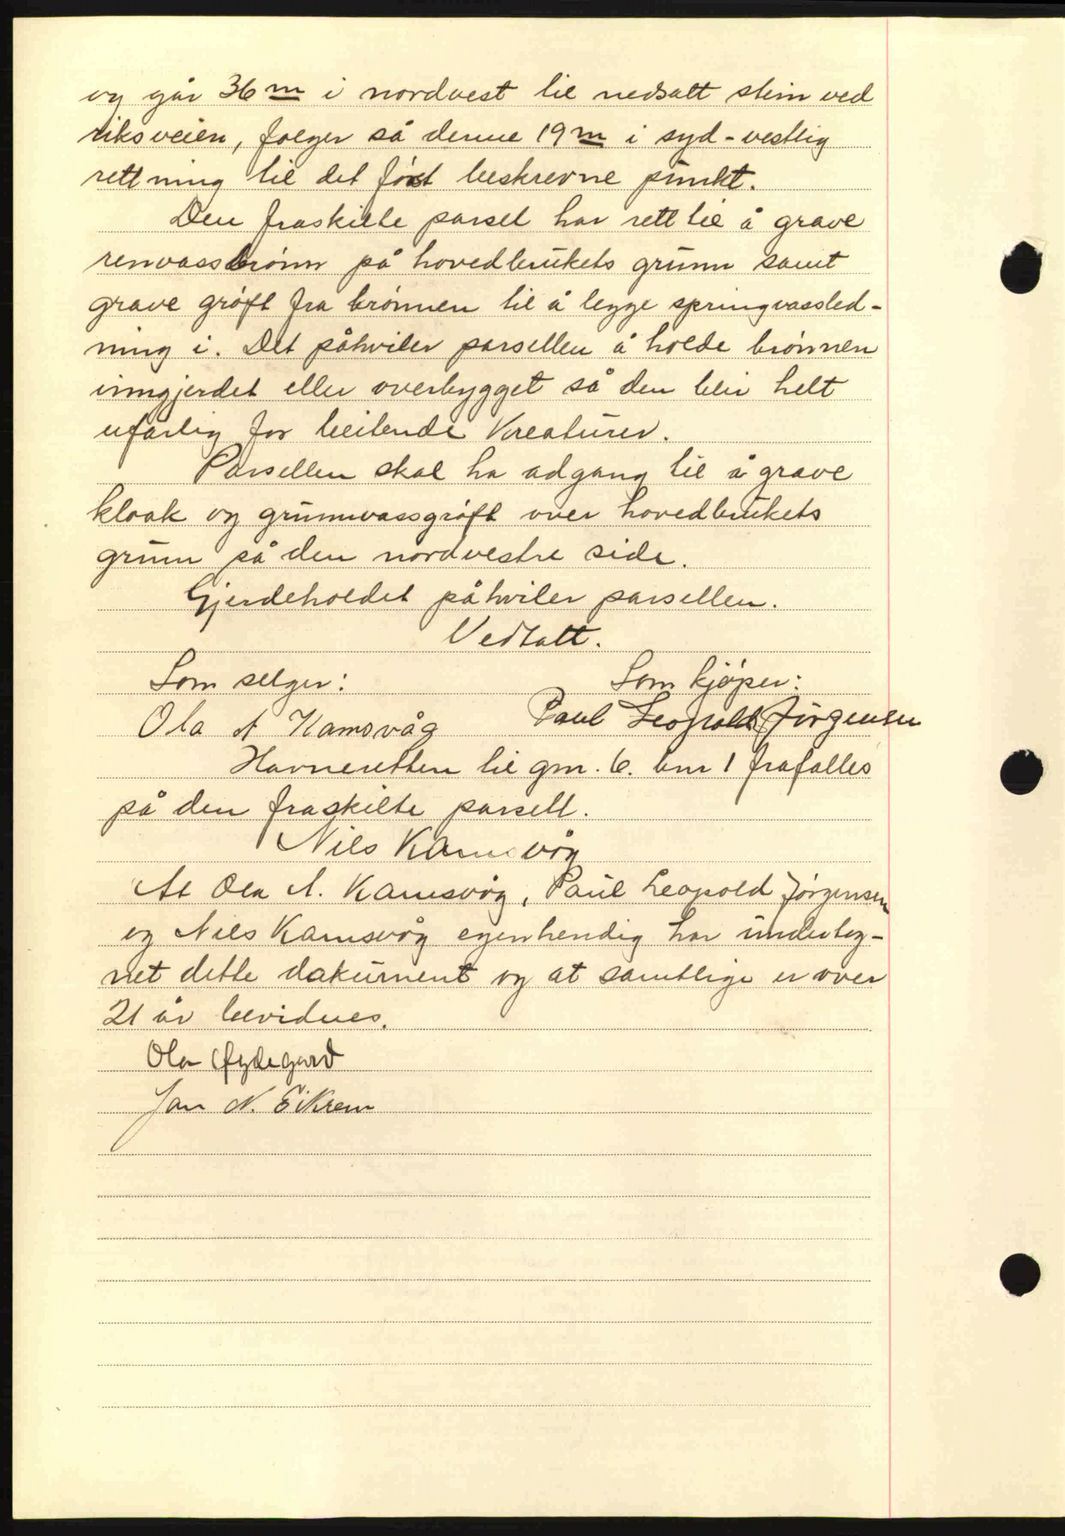 og går 36 m i nordvest til nedsatt stein ved
riksveien, følger så denne 19 m i syd-vestlig
rettning til det først beskrevne punkt.
Den fraskilte parsel har rett til å grave
renvassbrønn på hovedbrukets grunn samt
grave grøft fra brønnen til å legge springvassled-
ning i. Det påhviler parsellen å holde brønnen
inngjerdet eller overbygget så den blir helt
ufarlig for beitende Kreaturer.
Parsellen skal ha adgang til å grave
kloak og grunnvassgrøft over hovedbrukets
grunn på den nordvestre side.
Gjerdeholdet påhviler parsellen.
Vedtatt.
Som selger: Som kjøper:
Ola A Kamsvåg Paul Leopold Jørgensen
Havneretten til gnr. 6. bnr 1 frafalles
på den fraskilte parsell.
Nils Kamsvåg
At Ola A. Kamsvåg, Paul Leopold Jørgensen
og Nils Kamsvåg egenhendig har underteg-
net dette dokument og at samtlige er over
21 år bevidnes.
Ola Øydegard
Jan N. Eikrem